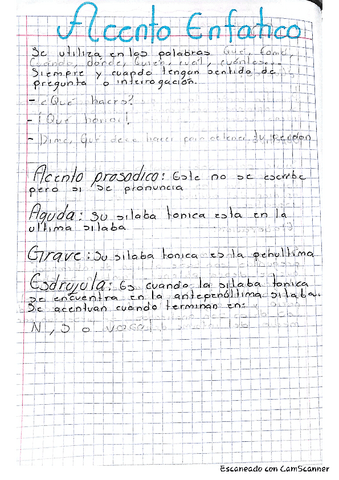 Acento Enfatico
Se utiliza en las palabras Que, Como,
Cuando, donde, Quien, cual y cuantos...
Siempre y cuando tengan sentido de
pregunta o interrogación.
- ¿Que haces?
- ¡Que
- Dime, que debo hacer para obtener tu perdon
Acento prosodico: Este no se escribe
pero si se pronuncia
Aguda: Su silaba tonica esta en la
ultima silaba
Grave: Su silaba tonica es la penultima
Esdrujula: Es cuando la silaba tonica
se encuentra en la antepenúltima silaba.
Se acentuan cuando terminan en:
N, S o vocal
Escaneado con CamScanner